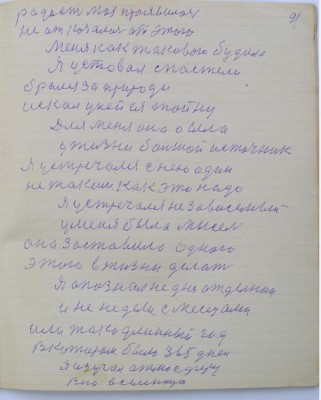 91
радост моя проявилас
не отказался от этого
Меня как такового будила
Я уствовал спастели
брался за природи
искал у ней ея тойну
Для меня она овела
у жизни большой источник
Я устречался с нею один
не таким как это надо
Я устречался независемый
у меня была мысел
она заставила одного
этого в жизни делат
Я опознал не дни отделния
и не недели с месецами
или такой длинный год
в котором было 365 дней
Я изучал атмосферу
вою вселенную